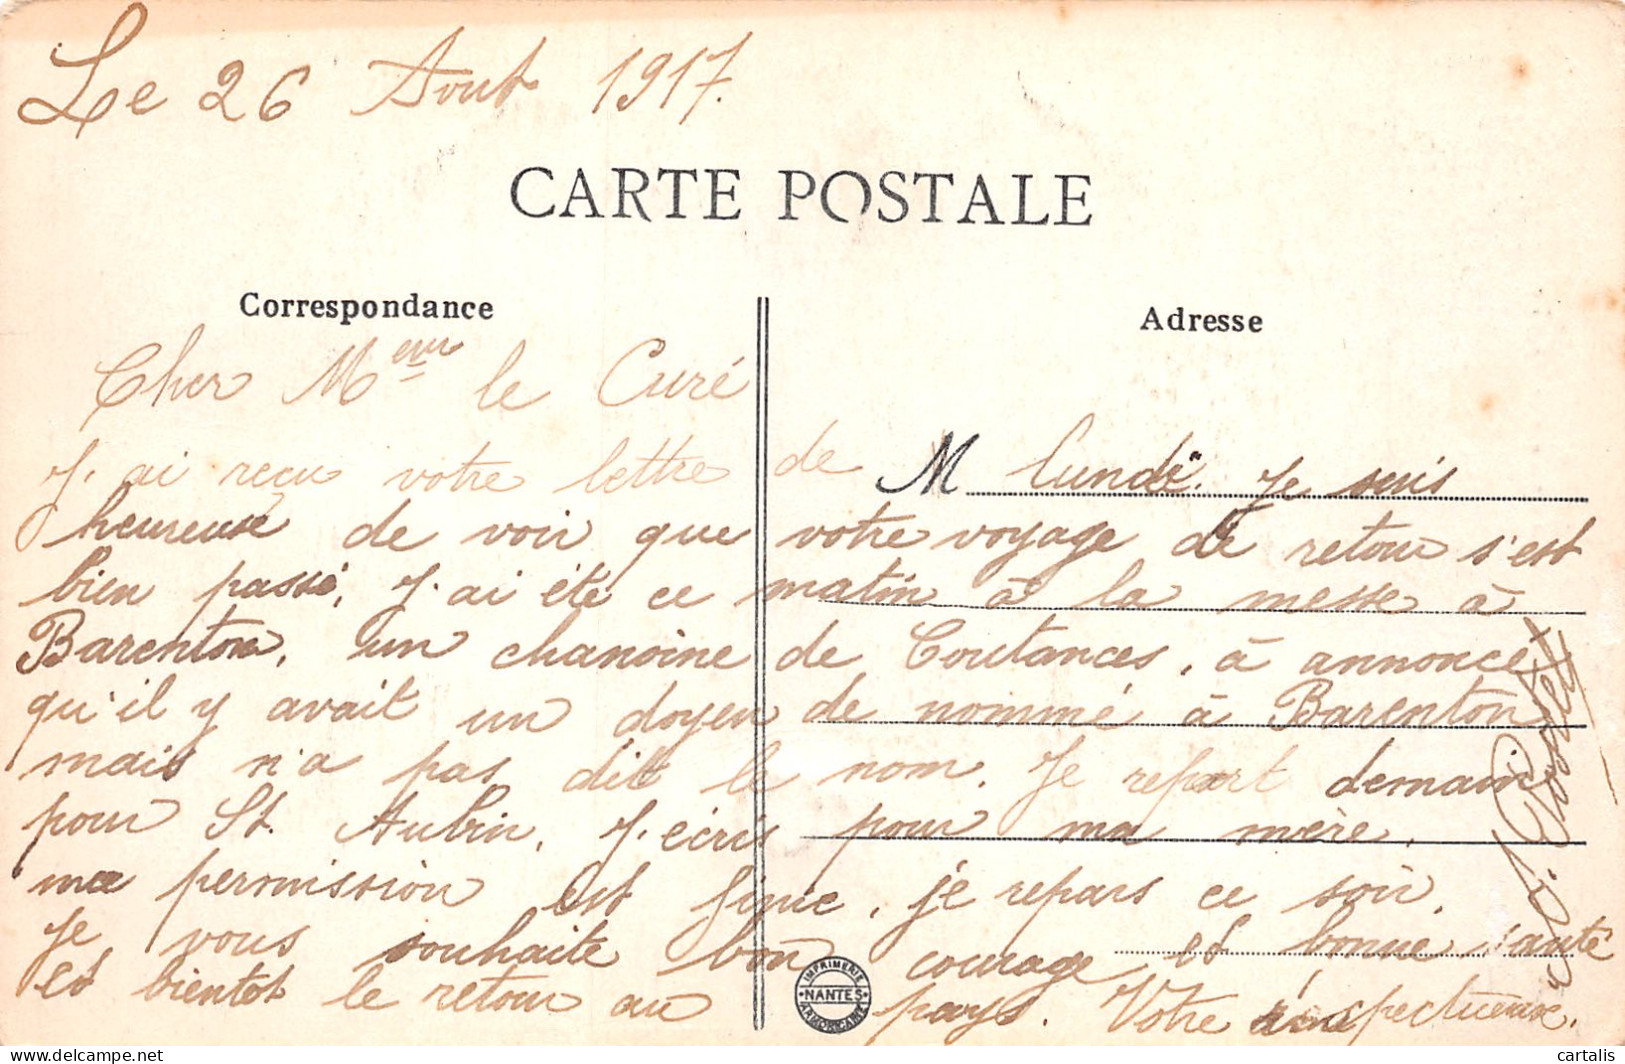 Le 26 Aout 1917.
CARTE POSTALE
Correspondance
Adresse
Cher Meur le Curé
J. ai reçu votre lettre de lundi. Je suis
heureuse de voir que votre voyage de retour s'est
bien passé, J. ai été ce matin à la messe à
Barenton, un chanoine de Coutances, à annoncé
qu'il y avait un doyen de nommé à Barenton
mais n'a pas dit le nom. Je repart demain
pour St. Aubin, J. écris pour ma mère,
ma permission est finie, je repars ce soir,
Je vous souhaite bon courage et bonne santé
et bientot le retour au pays. Votre respectueuse.
IMPRIMERIE
NANTES
ARMORICAINE
cartalis